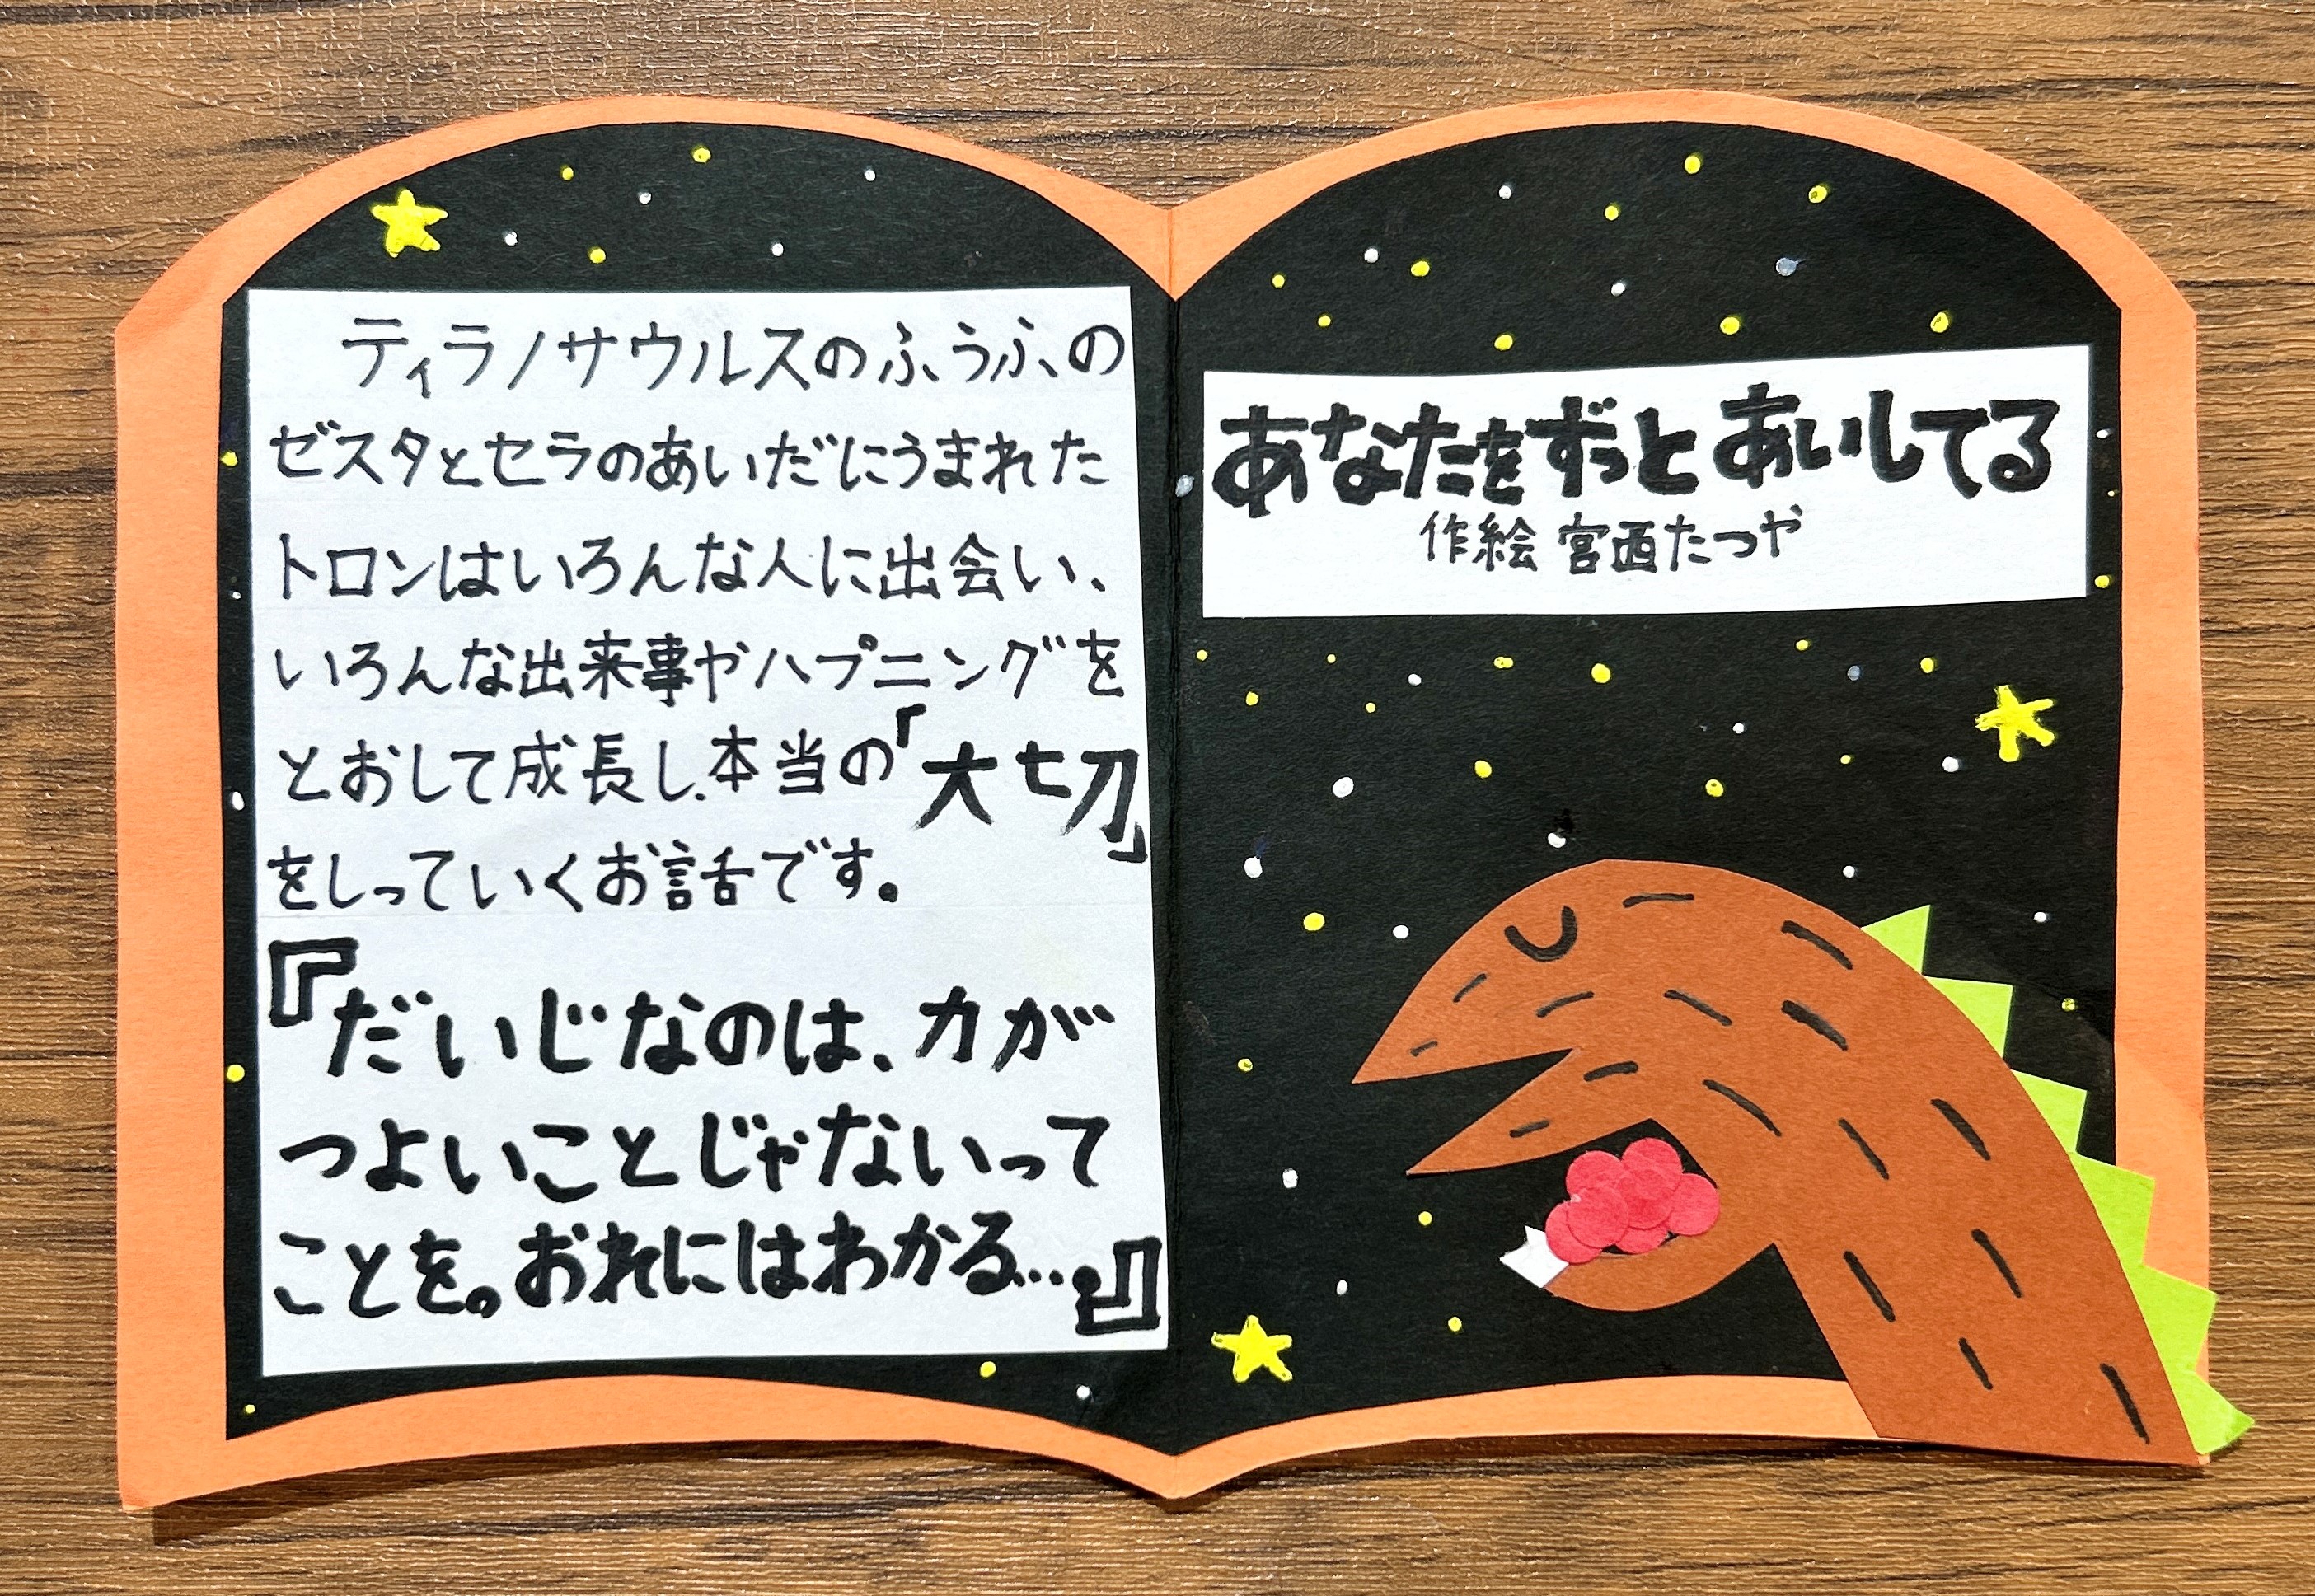 ティラノサウルスのふうふの
ゼスタとセラのあいだにうまれた
トロンはいろんな人に出会い、
いろんな出来事やハプニングを
とおして成長し、本当の「大切」
をしっていくお話です。
『だいじなのは、力が
つよいことじゃないって
ことを。おれにはわかる…。』
あなたをずっとあいしてる
作絵 宮西たつや